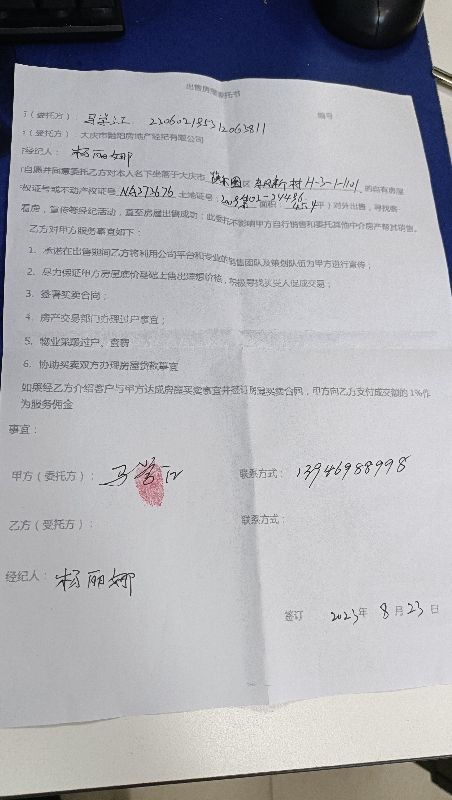 出售房屋委托书
编号
(委托方) 马学江 230602195312063811
(受托方) 大庆市 阳房地产经纪有限公司
经纪人: 杨丽娜
自愿并同意委托乙方对本人名下坐落于大庆市 区 新村 H-3-1-1101 的自有房屋
权证号或不动产权证号 NA373676 土地证号: 面积: 平)对外出售,寻找客
看房,宣传等经纪活动,直至房屋出售成功;此委托不影响甲方自行销售和委托其他中介房产帮其销售。
乙方对甲方服务事宜如下:
1、承诺在出售期间乙方将利用公司平台和专业的销售团队及策划队伍为甲方进行宣传;
2、尽力保证甲方房屋底价基础上售出理想价格,积极寻找买受人促成交易;
3、签署买卖合同;
4、房产交易部门办理过户事宜;
5、物业采暖过户、查费
6、协助买卖双方办理房屋贷款事宜
如果经乙方介绍客户与甲方达成房屋买卖事宜并签订房屋买卖合同,甲方向乙方支付成交额的1%作
为服务佣金
事宜:
甲方(委托方): 马学江 联系方式: 13946988998
乙方(受托方): 联系方式:
经纪人: 杨丽娜
签订 2023年 8月23日